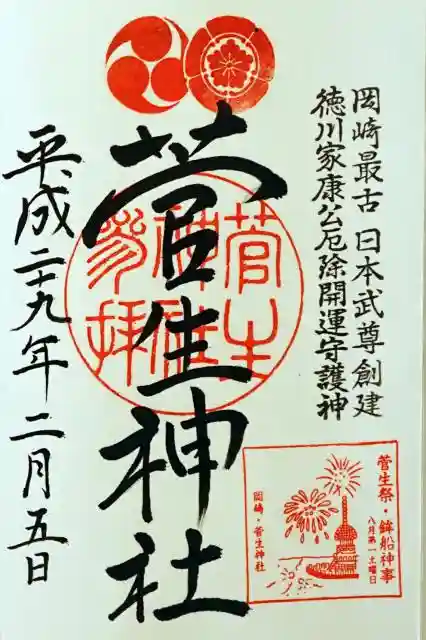 岡崎最古 日本武尊創建
徳川家康公厄除開運守護神
菅生神社
平成二十九年二月五日
菅生
神社
参拝
菅生祭・鉾船神事
八月第一土曜日
岡崎・菅生神社